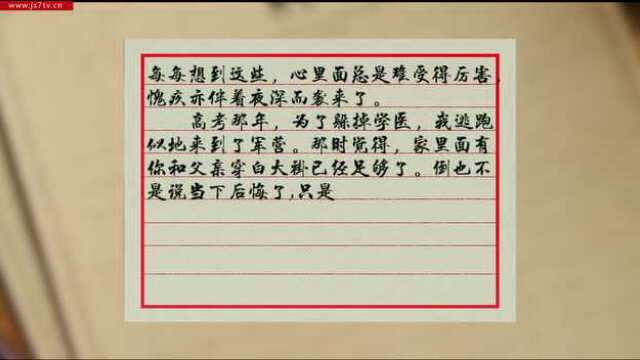 www.js7tv.cn
每每想到这些，心里面总是难受得厉害，
愧疚亦伴着夜深而袭来了。
高考那年，为了躲掉学医，我逃跑
似地来到了军营。那时觉得，家里面有
你和父亲穿白大褂已经足够了。倒也不
是说当下后悔了,只是